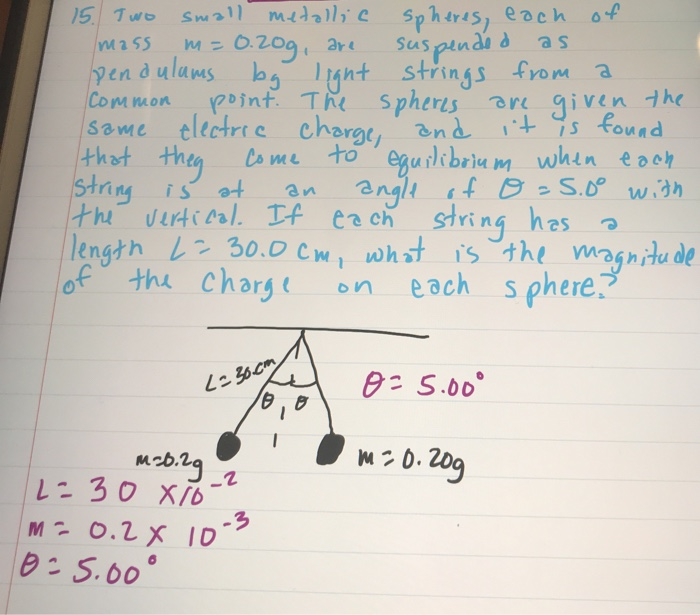 15. Two small metallic spheres, each of
mass m = 0.20g, are suspended as
pendulums by light strings from a
common point. The spheres are given the
same electric charge, and it is found
that they come to equilibrium when each
string is at an angle of θ = 5.0° with
the vertical. If each string has a
length L = 30.0 cm, what is the magnitude
of the charge on each sphere?
L = 30.cm
θ = 5.00°
θ θ
m=0.2g
m = 0.20g
L = 30 x10⁻²
m = 0.2 x 10⁻³
θ = 5.00°